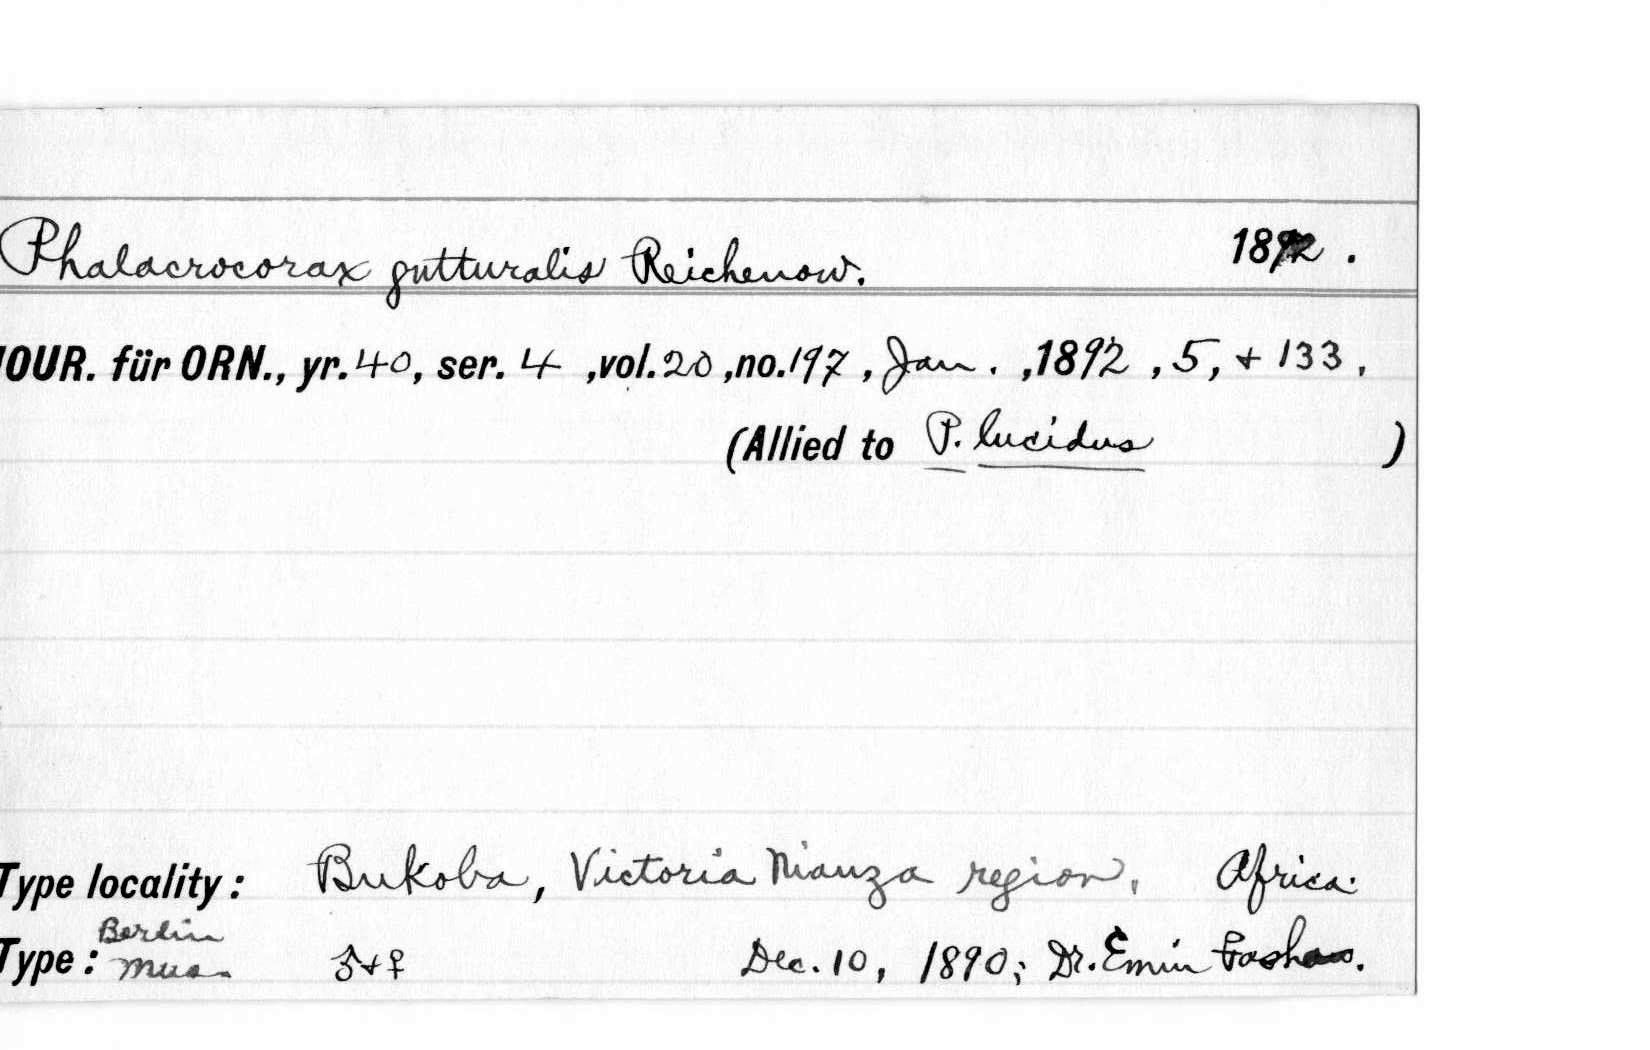 Phalacrocorax gutturalis Reichenow. 1892.
JOUR. für ORN., yr. 40, ser. 4 ,vol. 20 ,no. 197 , Jan. ,1892 , 5, + 133 .
(Allied to P. lucidus )
Type locality: Bukoba, Victoria Nianza region, Africa.
Type: Berlin Mus. ♂ + ♀ Dec. 10, 1890; Dr. Emin Pasha.